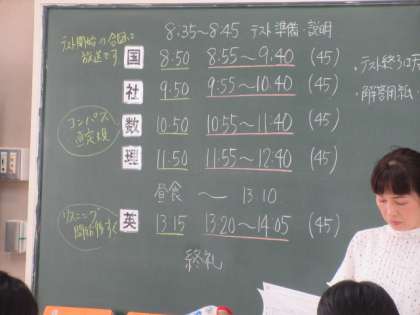 8:35～8:45 テスト準備・説明
テスト開始の合図は
放送です
国 8:50 8:55～9:40 (45)
社 9:50 9:55～10:40 (45)
コンパス
直定規
数 10:50 10:55～11:40 (45)
理 11:50 11:55～12:40 (45)
昼食 ～ 13:10
リスニング
開始後すぐ
英 13:15 13:20～14:05 (45)
終礼
・テスト終了
・解答用紙